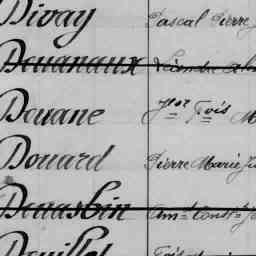 Divay Pascal Pierre
Douanaux Léandre
Douane Fois M
Douard Pierre Marie Ju
Douasbin Am Const
Douillet Fois